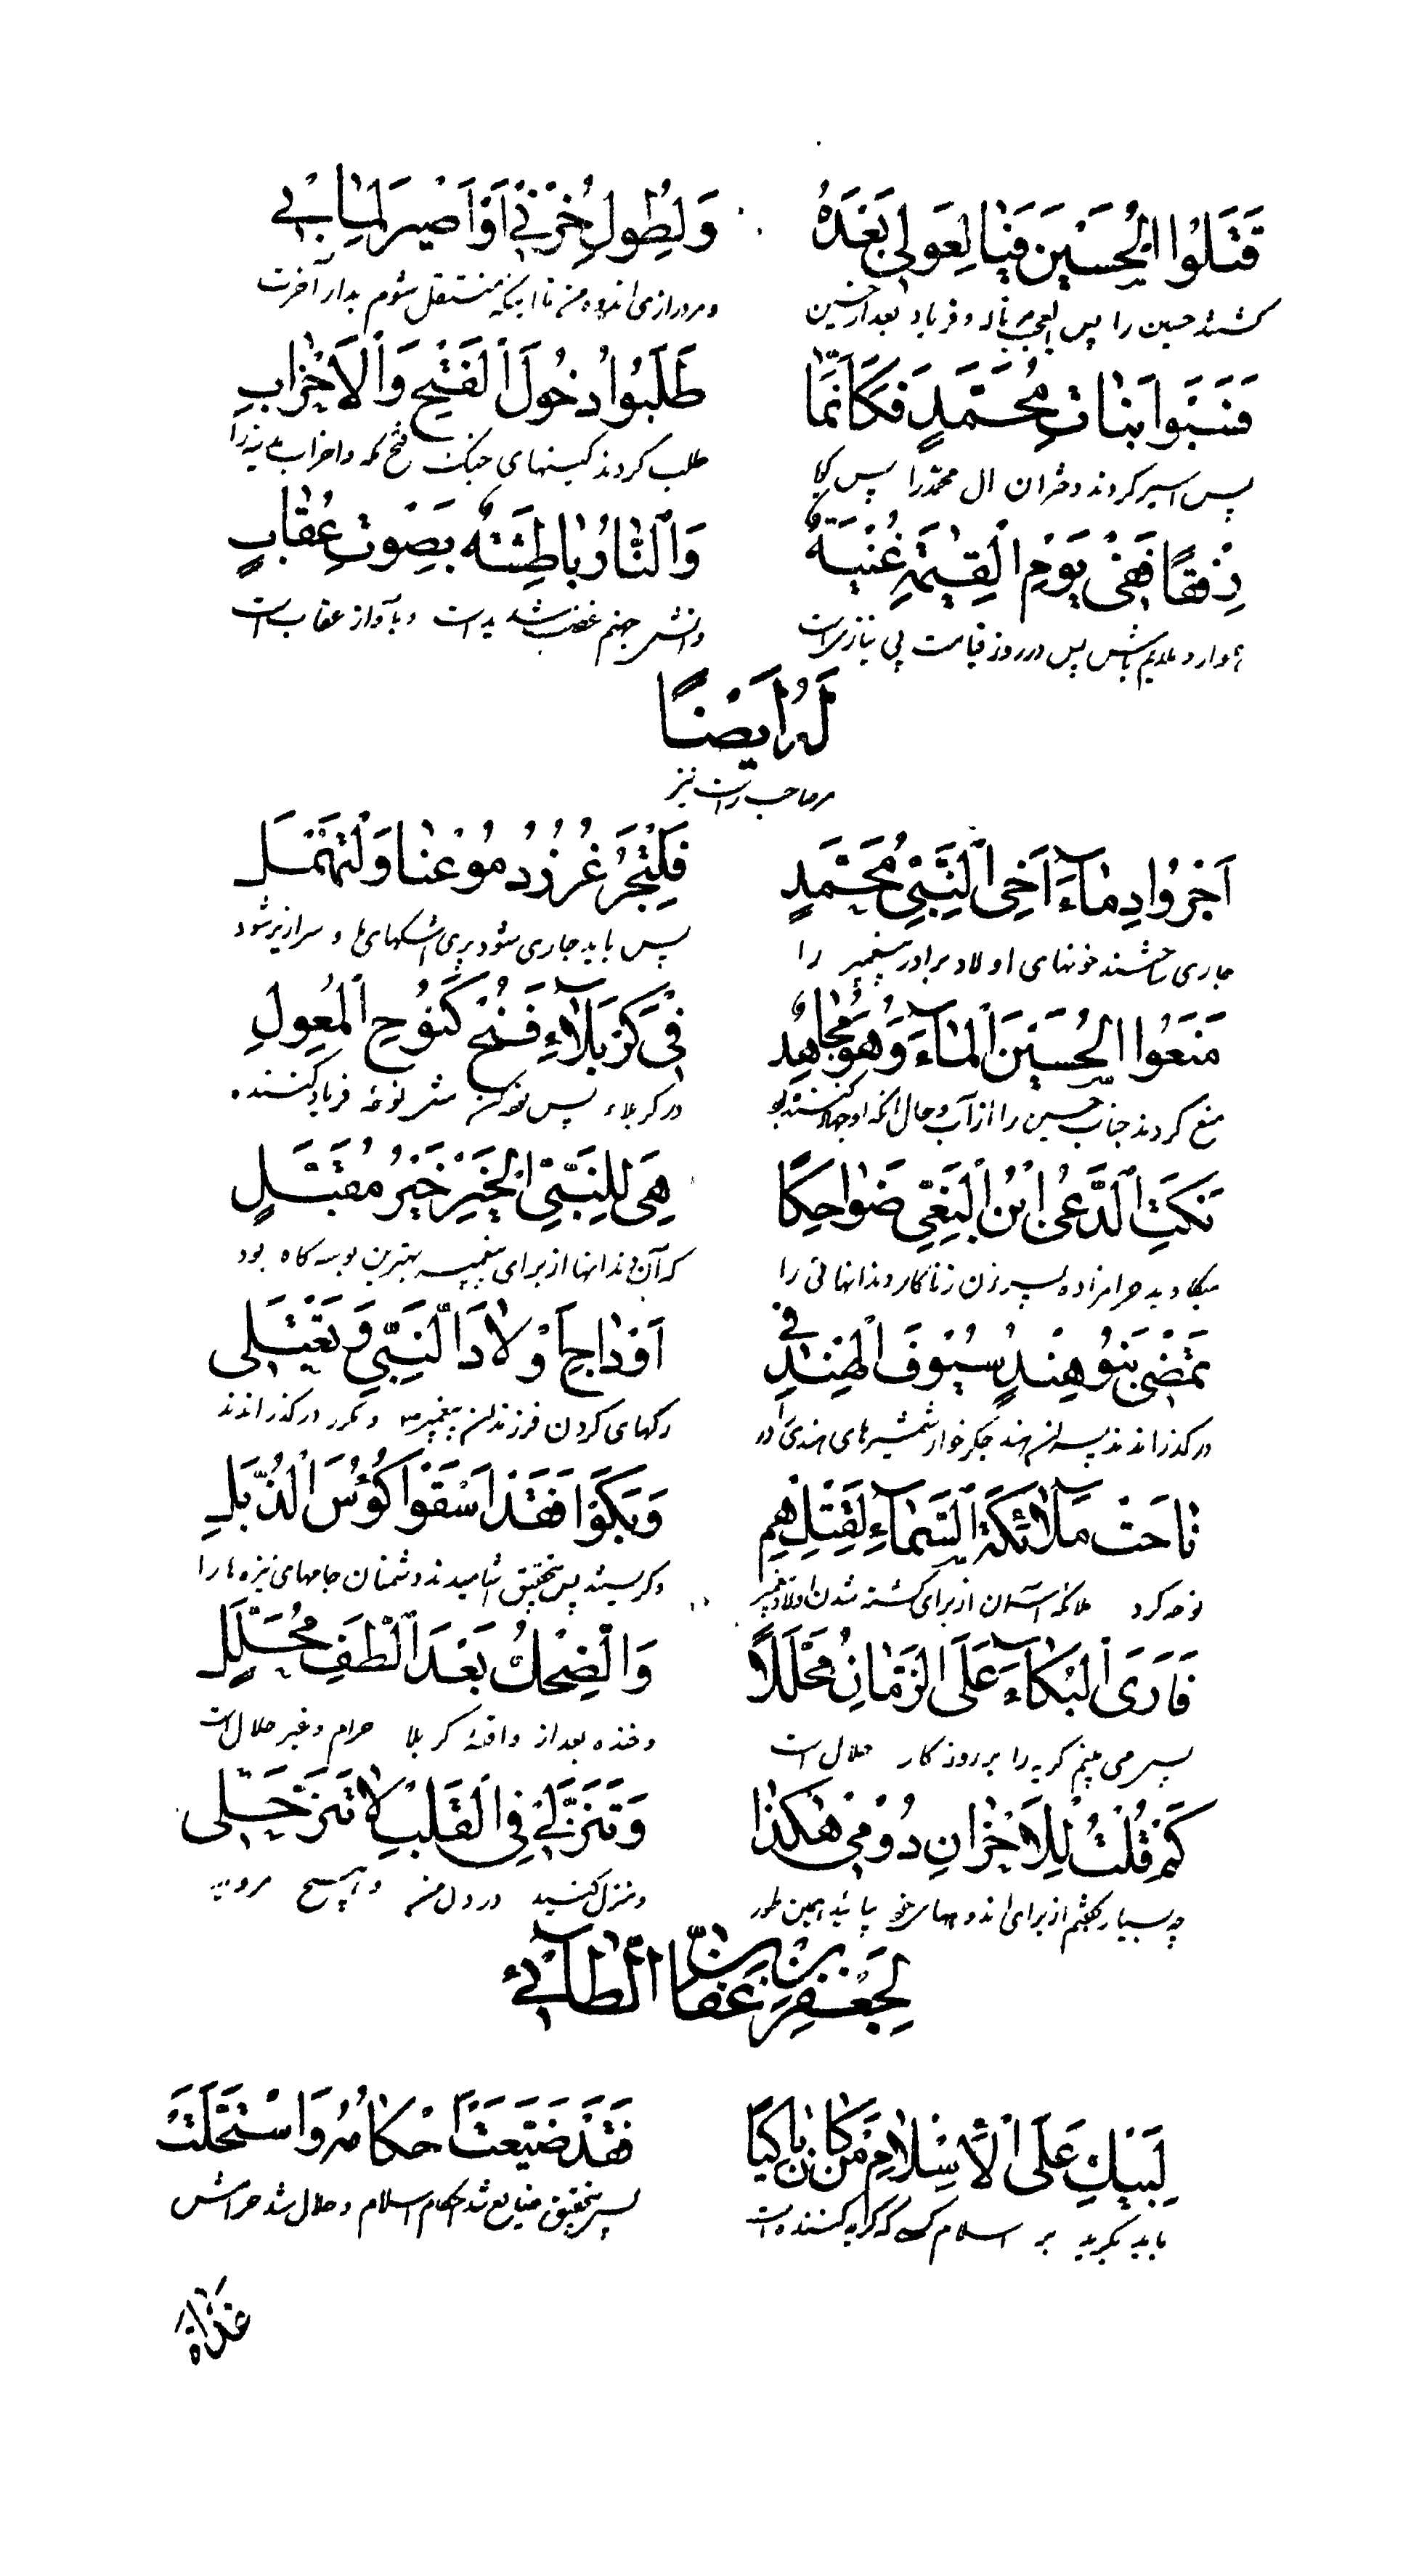 قَتَلُوا الْحُسَيْنَ فَيَا لِعَوْلِي بَعْدَهُ وَلِطُولِ حُزْنِي أَوْ أَصِيرَ لِمَا بِي
کشتند حسین را پس العجب ناله و فریاد بعد از حسین ودرازی اندوه من تا اینکه منتقل شوم بدار آخرت
فَسَبَوْا بَنَاتِ مُحَمَّدٍ فَكَأَنَّمَا طَلَبُوا دُخُولَ الْفَتْحِ وَالْأَحْزَابِ
پس اسیر کردند دختران ال محمد را پس گویا طلب کردند کینهای جنگ فتح مکه و احزاب را
رِفْقًا فَفِي يَوْمِ الْقِيٰمَةِ غُنْيَةٌ وَالنَّارُ بَاطِشَةٌ بِصَوْتِ عِقَابٍ
ملایم باش پس در روز قیامت بی نیازی است واتش جهنم غضب شدید است وبآواز عقاب است
لَهُ أَيْضًا
مرصاحب راست نیز
أَجْرَوْا دِمَاءَ أَخِي النَّبِيِّ مُحَمَّدٍ فَلْتَجْرِ غُزْرُ دُمُوعِنَا وَلْتَهْمَلِ
جاری ساختند خونهای اولاد برادر پیغمبر را پس باید جاری شود پری اشکهای ما و سرازیر شود
مَنَعُوا الْحُسَيْنَ الْمَاءَ وَهُوَ مُجَاهِدٌ فِي كَرْبَلَاءِ فَنُحْ كَنَوْحِ الْمُعْوِلِ
منع کردند جناب حسین را از آب وحال آنکه او جهاد کننده بود در کربلاء پس نوحه کن مثل نوحهٔ فریاد کننده
نَكَتِ الدَّعِيُّ ابْنُ الْبَغِيِّ ضَوَاحِكًا هِيَ لِلنَّبِيِّ الْخَيْرِ خَيْرُ مُقَبَّلٍ
میکاوید حرامزاده پسر زن زناکار دندانهائی را که آن دندانها از برای پیغمبر بهترین بوسه کاه بود
تَمْضِي بَنُو هِنْدٍ سُيُوفَ الْهِنْدِ فِي أَوْدَاجِ أَوْلَادِ النَّبِيِّ وَتَعْتَلِي
درگذراندند پسران هند جگرخوار شمشیرهای هندی را در رگهای گردن فرزندان پیغمبر و مکرر درگذراندند
نَاحَتْ مَلَائِكَةُ السَّمَاءِ لِقَتْلِهِمْ وَبَكَوْا فَقَدْ أُسْقُوا كُؤُسَ الذُّبَّلِ
نوحه کرد ملائکه آسمان از برای کشته شدن اولاد پیغمبر وگریستند پس بتحقیق شامیدند دشمنان جامهای نیزه ها را
فَأَرَى الْبُكَاءَ عَلَى الزَّمَانِ مُحَلَّلًا وَالضِّحْكُ بَعْدَ الطَّفِّ مُحَلَّلٍ
پس می بینم گریه را بر روزگار حلال است وخنده بعد از واقعهٔ کربلا حرام وغیر حلال است
كَمْ قُلْتُ لِلْأَحْزَانِ دُومِي هٰكَذَا وَتَنَزَّلِي فِي الْقَلْبِ لَا تَتَرَحَّلِي
چه بسیار گفتم از برای اندوههای خود پائید همین طور ومنزل کنید در دل من و هیچ مروید
لِجَعْفَرِ بْنِ عَفَّانَ الطَّائِيِّ
لِيَبْكِ عَلَى الْإِسْلَامِ مَنْ كَانَ بَاكِيًا فَقَدْ ضُيِّعَتْ أَحْكَامُهُ وَاسْتُحِلَّتْ
باید بگرید بر اسلام کسی که گریه کننده است پس بتحقیق ضایع شد احکام اسلام و حلال شد حرامش
غَدَاةَ